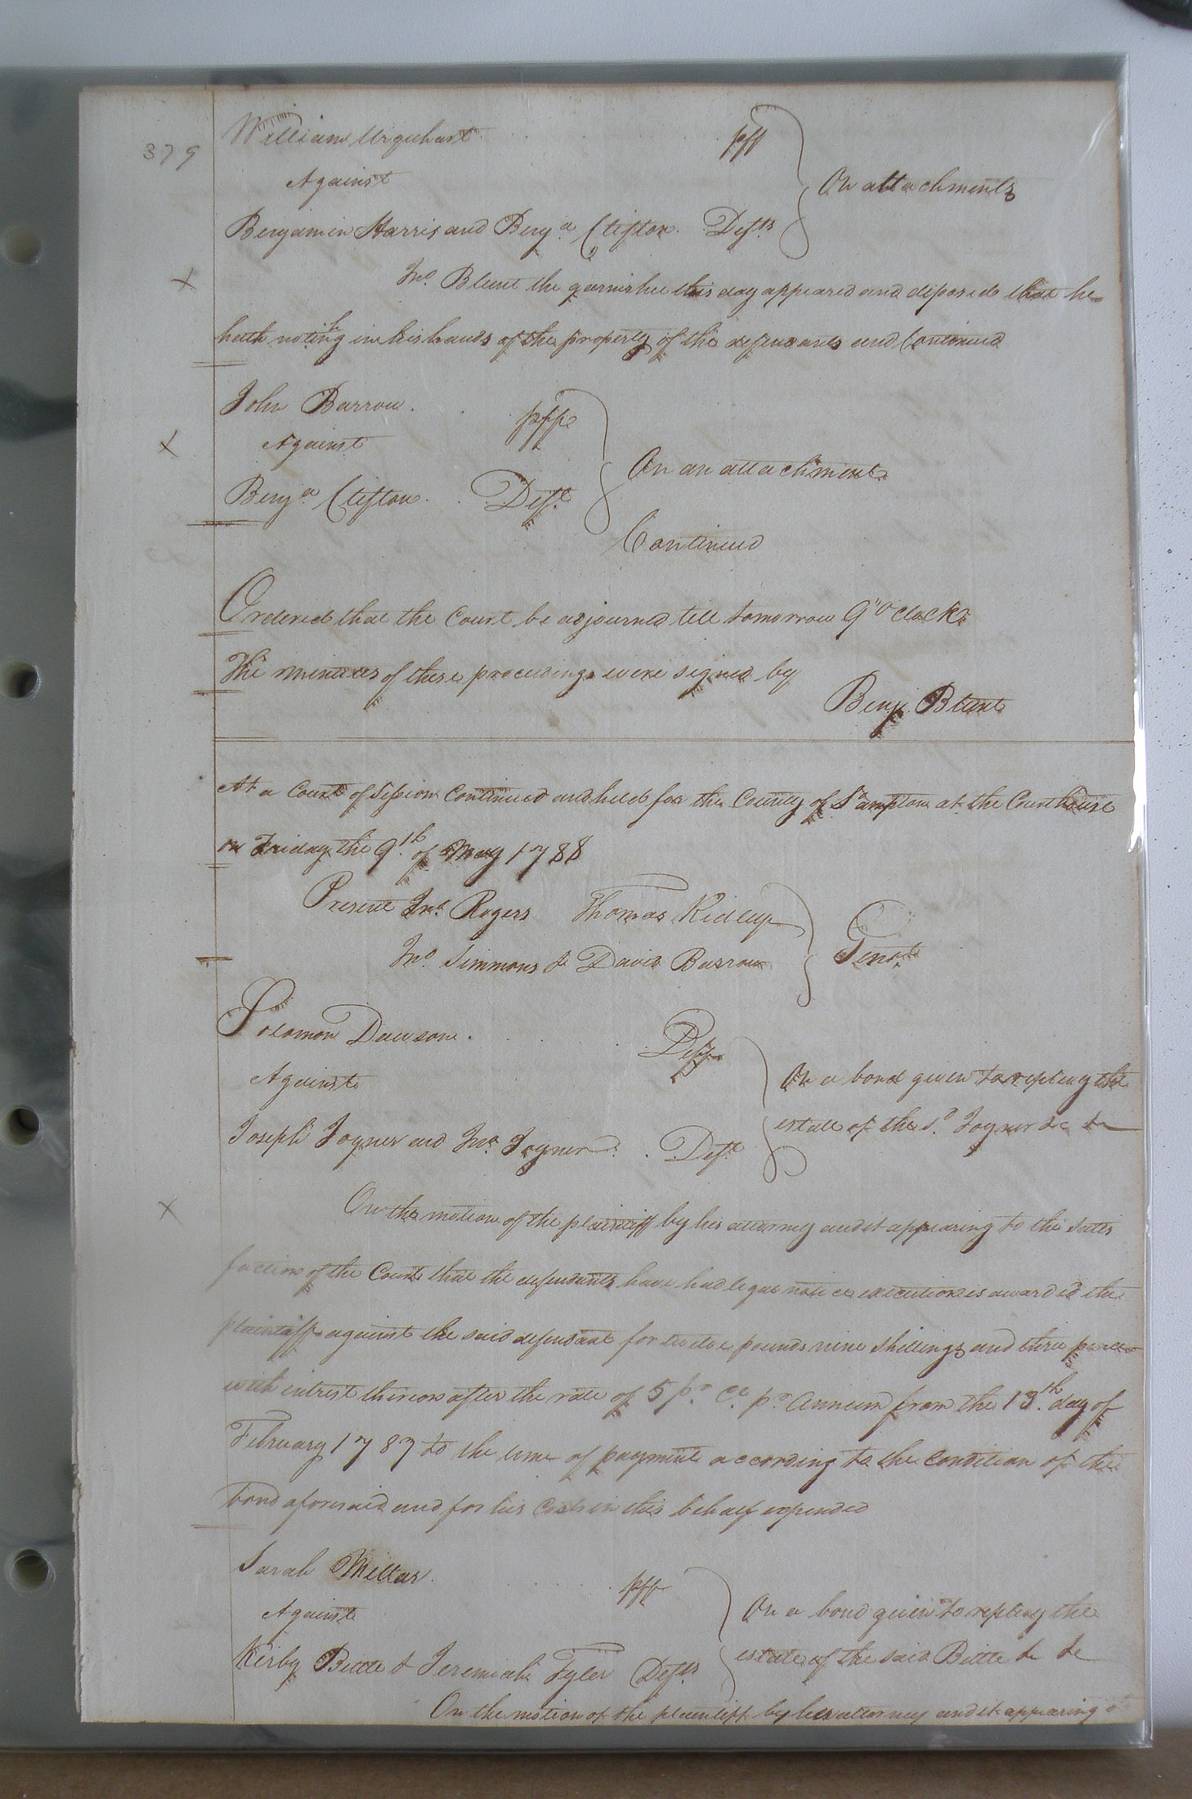 379
William Urquhart . . . plf
Against
Benjamin Harris and Benja Clifton. Defts
On attachments
Jno. Blunt the garnishee this day appeared and deposed that he
hath nothing in his hands of the property of the defendants and Continued
John Barrow . . plf
Against
Benja Clifton . . Deft.
On an attachment
Continued
Ordered that the Court be adjourned till tomorrow 9 oClock
The minutes of these proceedings were signed by
Benja. Blunt
At a Court of Session Continued and held for the County of S.ampton at the Courthouse
on Friday the 9th. of May 1788
Present Jno. Rogers Thomas Ridley
Jno. Simmons & David Barrow
Gent.
Solomon Dawson . . .
Against
Joseph Joyner and Jno. Joyner . . Deft.
On a bond given to replevy the
estate of the sd. Joyner &c &c
On the motion of the plaintiff by his attorney and it appearing to the satis
faction of the Court that the defendants have had legal notice execution is awarded the
plaintiff against the said defendant for twelve pounds nine shillings and three pence
with intrest thereon after the rate of 5 pr. Ct. pr. Annum from the 13th. day of
February 1787 to the time of payment according to the Condition of the
bond aforesaid and for his Costs in this behalf expended
Sarah Millar . . . plf
Against
Kirby Bittle & Jeremiah Tyler Defts.
On a bond given to replevy the
estate of the said Bittle &c &c
On the motion of the plaintiff by her attorney and it appearing